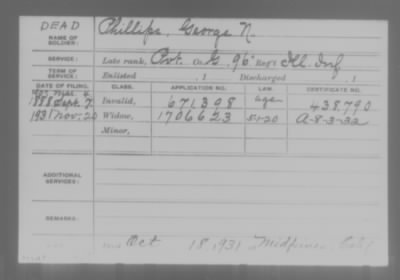 DEAD
NAME OF SOLDIER: Phillips, George N.
SERVICE: Late rank, Pvt. Co. G, 96" Reg't Ill. Inf.
TERM OF SERVICE: Enlisted , 1 Discharged , 1
DATE OF FILING. CLASS. APPLICATION NO. LAW. CERTIFICATE NO.
1888 Sept. 7. Invalid, 671398 age 438790
1931 Nov. 20 Widow, 1706623 5-1-20 A-8-3-32
Minor,
ADDITIONAL SERVICES:
REMARKS:
Oct 18, 1931